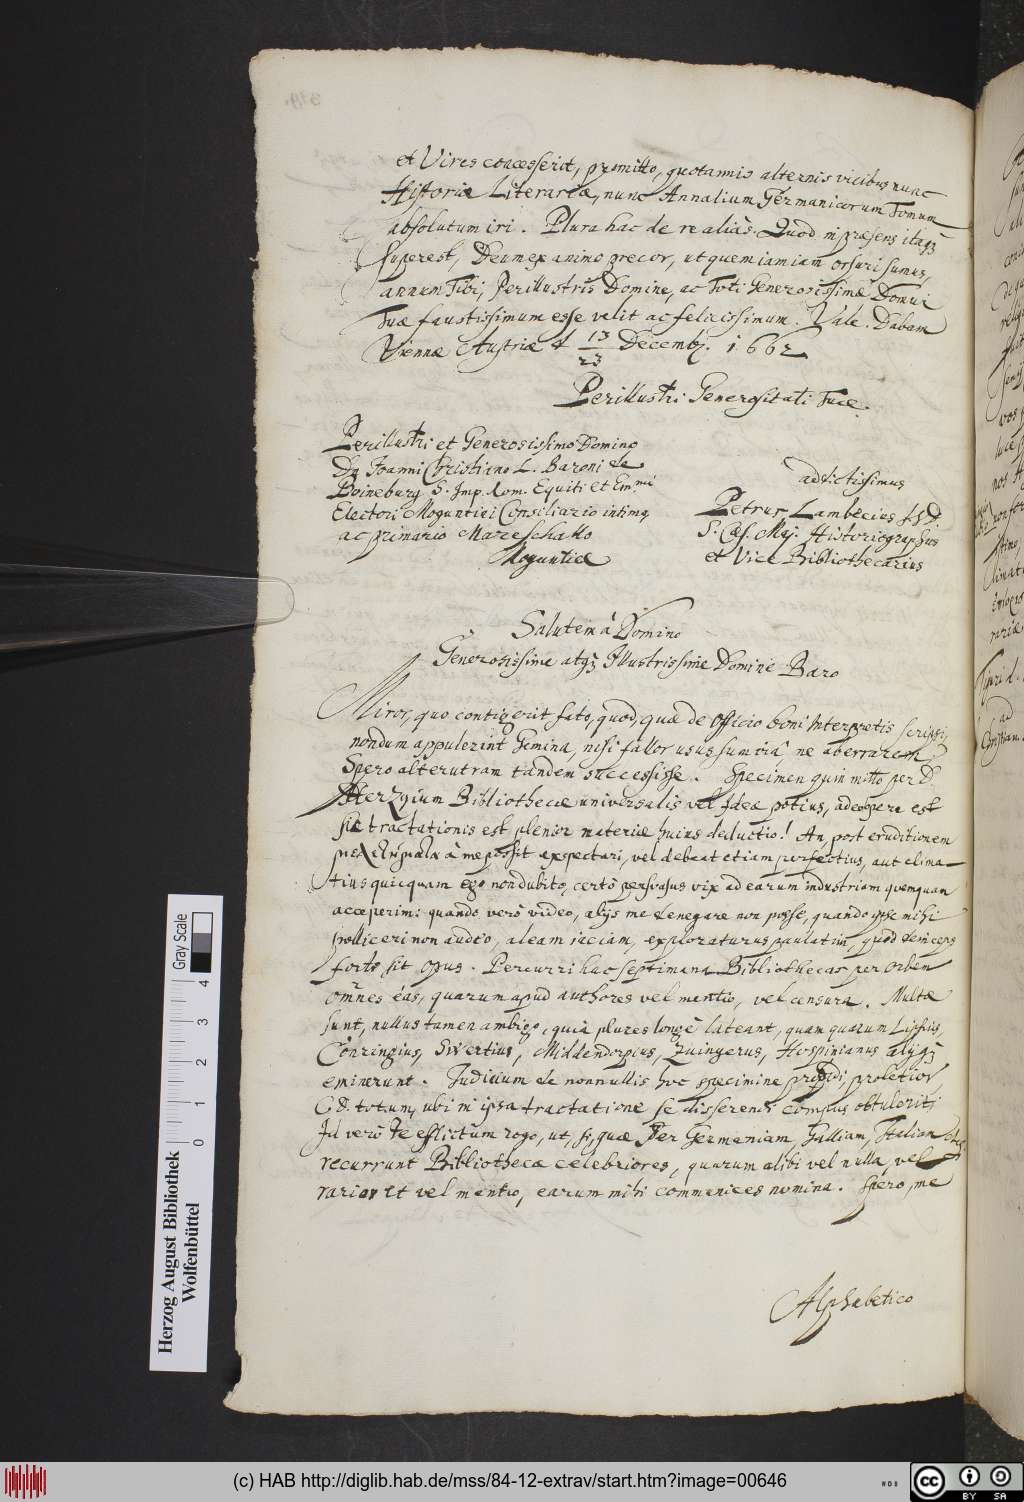 et Vires concesserit, promitto, quotannis alternis vicibus nunc
Historiæ Literariæ, nunc Annalium Germanicorum Tomum
absolutum iri. Plura hac de re aliàs. Quod in præsens itaq3
superest, Deum ex animo precor, ut quem iam iam orsuri sumus,
annum Tibi, Perillustris Domine, ac Toti Generosissimæ Domui
Tuæ faustissimum esse velit ac felicissimum. Vale. Dabam
Viennæ Austriæ 13/23 Decemb. 1662
Perillustri Generositati Tuæ
Perillustri et Generosissimo Domino
Dn Joanni Christiano L. Baroni de
Boineburg S. Imp. Rom. Equiti et Em.mi
Electori Moguntini Consiliario intimo,
ac primario Mareschallo
Moguntiæ
addictissimus
Petrus Lambecius
S. Cæs. Maj. Historiographus
et Vice Bibliothecarius
Salutem à Domino
Generosissime atq3 Illustrissime Domine Baro
Miror, quo contigerit fato, quod, quæ de Officio boni Interpretis scripsi,
nondum appulerint Gemina, nisi fallor usus sum viâ ne aberrarem
Spero alterutram tandem successisse. Specimen quin mitto per D.
Herzgium Bibliothecæ universalis vel Ideæ potius, adeo est
tractationis est plenior materiæ huius deductio! An, post eruditionem
à me possit expectari, vel debeat etiam perfectius, aut elima-
tius quicquam ego non dubito, certò persvasus vix ad earum industriam quemquam
acceperim: quando verò video, alijs me denegare non posse, quando ipse mihi
polliceri non audeo, aleam iaciam, exploraturus paulatim, quod deinceps
fortè sit opus. Percurri hac septimana Bibliothecas per Orbem
omnes eas, quarum apud authores vel mentio, vel censura. Multæ
sunt, nullus tamen ambigo, quin plures longè lateant, quam quarum Lipsius,
Conringius, Swertius, Middendorpius, Zuingerus, Hospinianus alijq3
meminerunt. Iudicium de nonnullis hoc specimine, prolatior
totum, ubi in ipsa tractatione se disserendi campus obtulerit;
Id verò Te efflictum rogo, ut, si, quæ Per Germaniam, Galliam, Italiam
recurrunt Bibliothecæ celebriores, quarum alibi vel nulla, vel
rarior et vel mentio, earum mihi communices nomina. Spero, me
Alphabetico
Herzog August Bibliothek
Wolfenbüttel
0 1 2 3 4
Gray Scale
(c) HAB http://diglib.hab.de/mss/84-12-extrav/start.htm?image=00646
cc BY SA